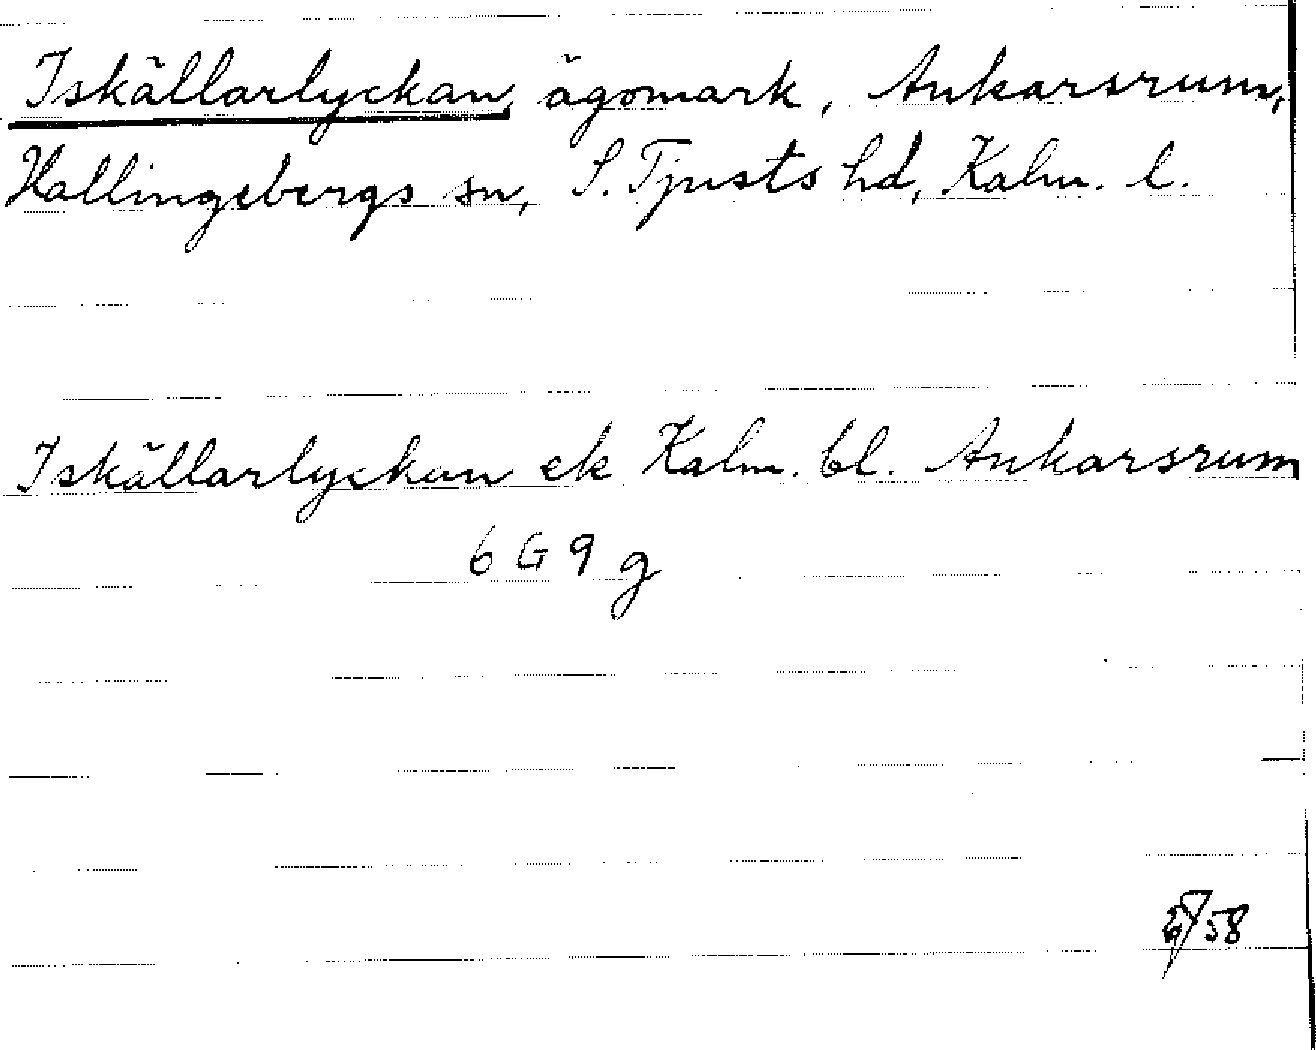 Iskällarlyckan, ägomark, Ankarsrum,
Hallingebergs sn, S. Tjusts hd, Kalm. l.
Iskällarlyckan ek Kalm. bl. Ankarsrum
6 G 9 g
58